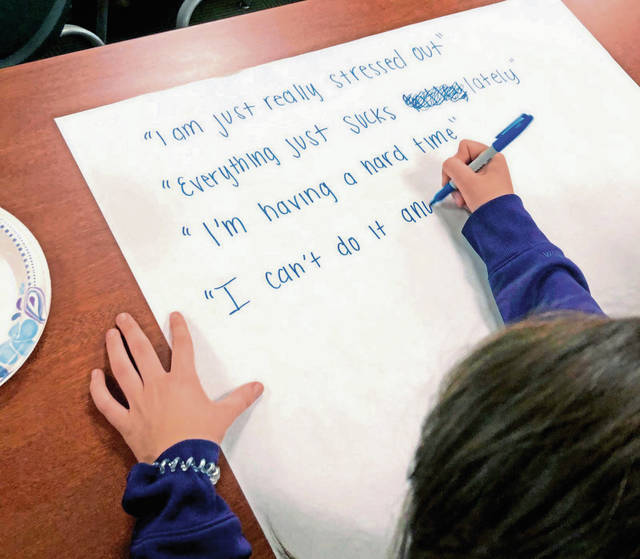 "I am just really stressed out"
"Everything just sucks lately"
"I'm having a hard time"
"I can't do it any